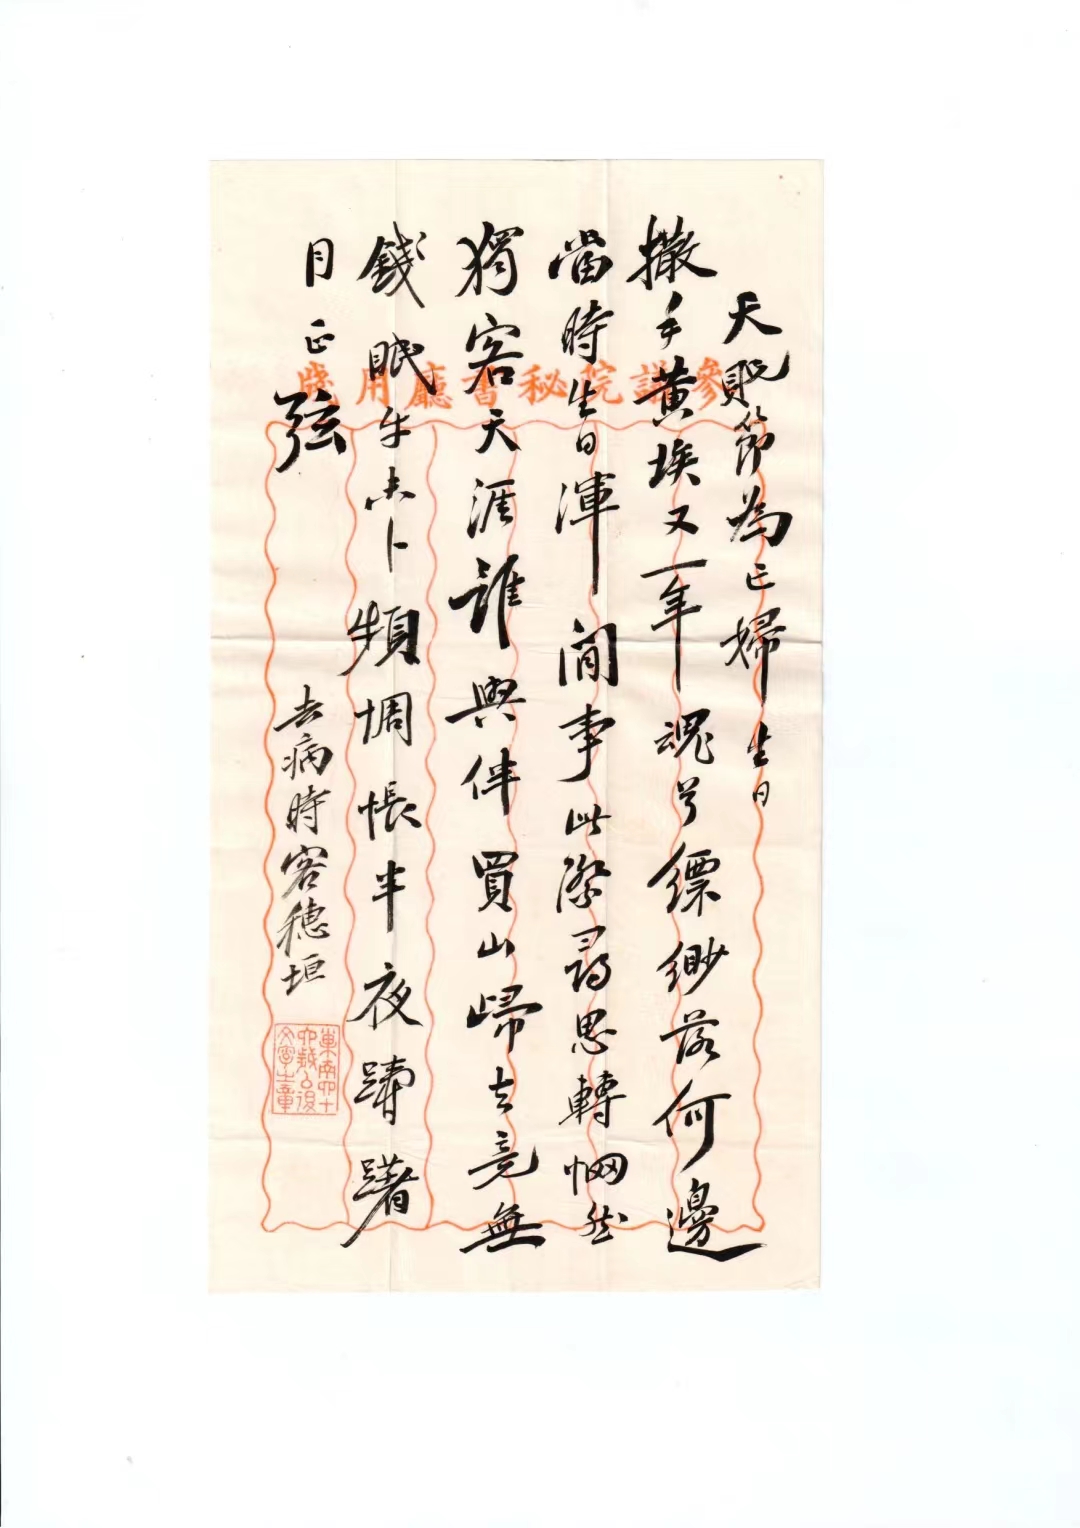 參議院秘書廳用牋
天貺節為亡婦生日
撒手黃埃又一年魂兮縹緲落何邊
當時生日渾閒事此際尋思轉惘然
獨客天涯誰與伴買山歸去竟無
錢眠牛未卜頻惆悵半夜躊躇
月正弦
去病時客穗垣
東南四十